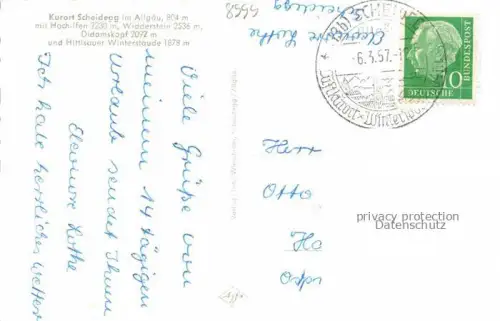 Kurort Scheidegg im Allgäu, 804 m
mit Hochifen 2230 m, Widderstein 2536 m,
Didamskopf 2092 m
und Hittisauer Winterstaude 1878 m
Viele Grüße von
meinem 14 tägigen
Urlaub sendet Ihnen
Eleonore Lothe
Ich habe herrliches Wetter
Eleonore Lothe
Scheidegg
-6.3.57.-1
Luftkurort-Winter
10
DEUTSCHE
BUNDESPOST
Herr
Otto
Ho
privacy protection
Datenschutz
Agfa